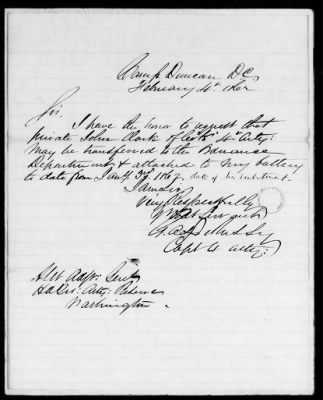 Camp Duncan D.C.
February 4th 1862
Sir,
I have the honor to request that
private John Clark of 4th Arty:
may be transferred to the Ordnance
Department & attached to my battery
to date from Jany 3d 1862, date of his enlistment.
I am Sir
Very Respectfully
Your Obt Servant
Capt 4 Arty:
Asst Adjt: Genl
Hd Qrs: Arty: Reserve
Washington